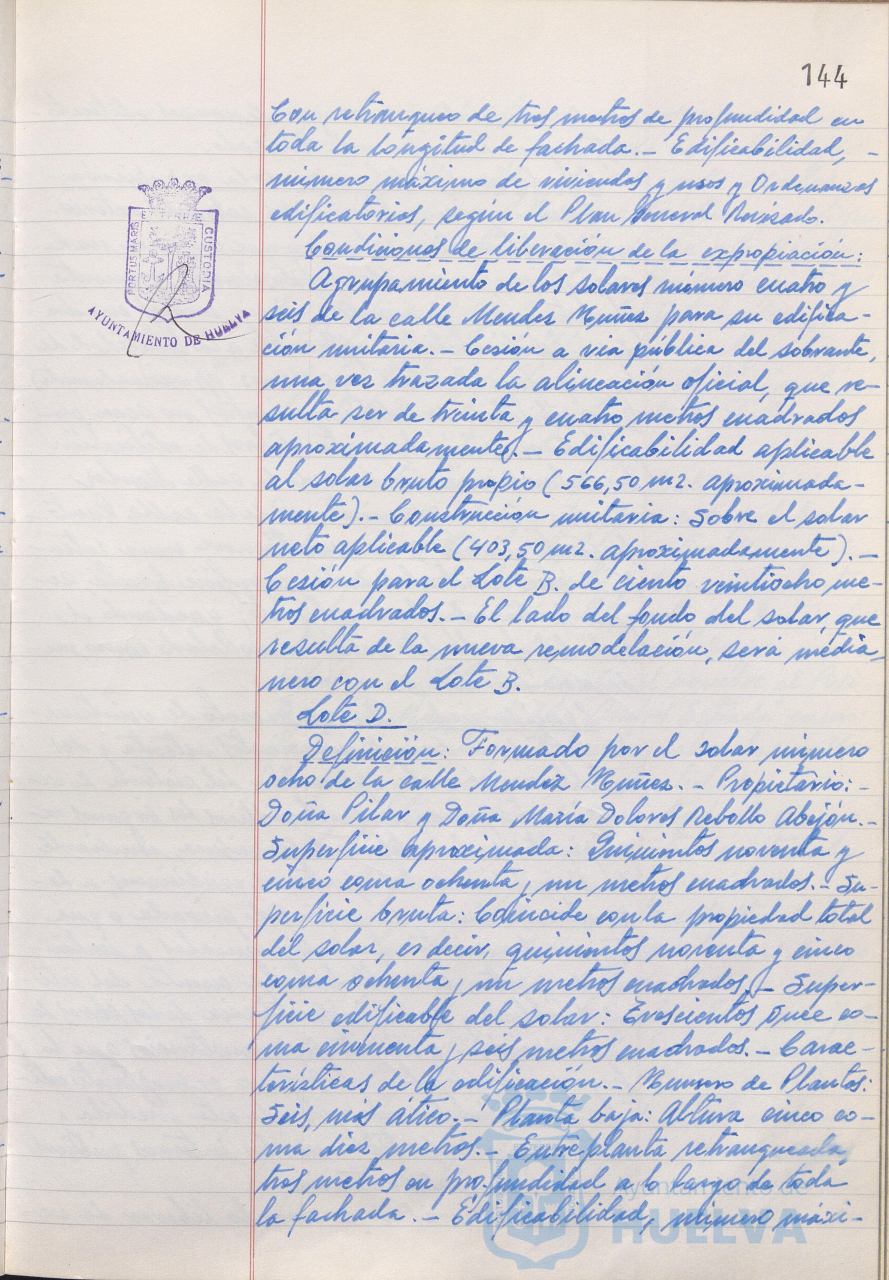 144
Con retranqueo de tres metros de profundidad en
toda la longitud de fachada.- Edificabilidad, -
número máximo de viviendas y usos y Ordenanzas
edificatorias, según el Plan General Revisado.
Condiciones de liberación de la expropiación:
Agrupamiento de los solares número cuatro y
seis de la calle Mendez Nuñez para su edifica-
ción unitaria.- Cesión a via pública del sobrante,
una vez trazada la alineación oficial, que re-
sulta ser de treinta y cuatro metros cuadrados
aproximadamente.- Edificabilidad aplicable
al solar bruto propio (566,50 m2. aproximada-
mente).- Construcción unitaria: Sobre el solar
neto aplicable (403,50 m2. aproximadamente).-
Cesión para el Lote B. de ciento veintiocho me-
tros cuadrados.- El lado del fondo del solar, que
resulta de la nueva remodelación, será media-
nero con el Lote B.
Lote D.
Definición: Formado por el solar número
ocho de la calle Mendez Nuñez.- Propietario:-
Doña Pilar y Doña María Dolores Rebollo Abejón.-
Superficie aproximada: Quinientos noventa y
cinco coma ochenta y un metros cuadrados.- Su-
perficie bruta: Coincide con la propiedad total
del solar, es decir, quinientos noventa y cinco
coma ochenta y un metros cuadrados.- Super-
ficie edificable del solar: Trescientos once co-
ma cincuenta y seis metros cuadrados.- Carac-
terísticas de la edificación.- Numero de Plantas:
Seis, más ático.- Planta baja: Altura cinco co-
ma diez metros.- Entreplanta retranqueada,
tres metros en profundidad a lo largo de toda
la fachada.- Edificabilidad, número máxi-
PORTUS MARIS ET TERRAE CUSTODIA
AYUNTAMIENTO DE HUELVA
Ayuntamiento de
HUELVA